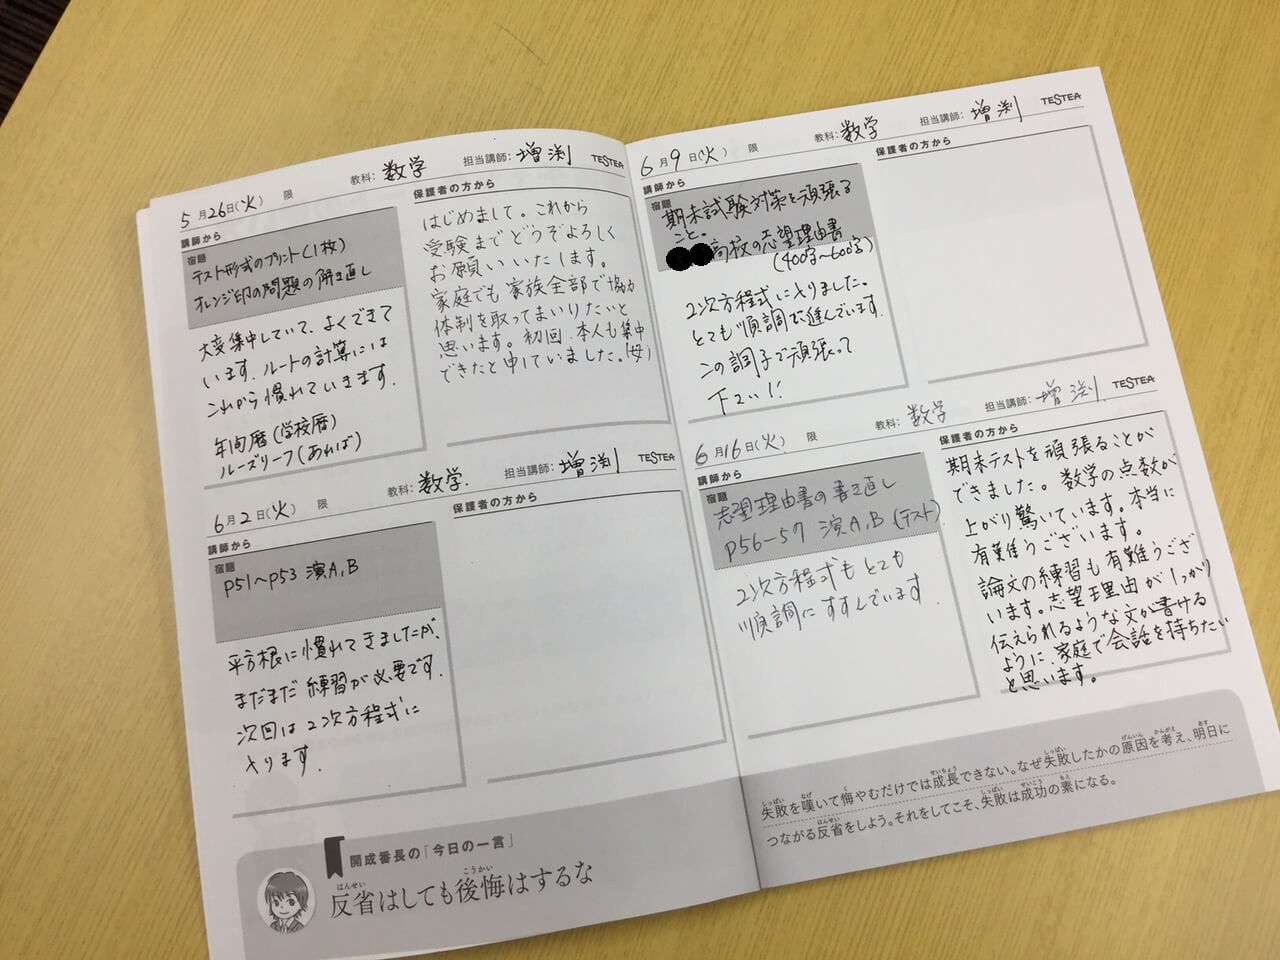 5月26日(火) 限 教科:数学 担当講師:増渕 TESTEA
講師から
宿題
テスト形式のプリント(1枚)
オレンジ印の問題の解き直し
大変集中していて、よくできて
います。ルートの計算には
これから慣れていきます。
年間暦(学校暦)
ルーズリーフ(あれば)
保護者の方から
はじめまして。これから
受験までどうぞよろしく
お願いいたします。
家庭でも家族全部で協力
体制を取ってまいりたいと
思います。初回、本人も集中
できたと申していました。(母)
6月2日(火) 限 教科:数学. 担当講師:増渕 TESTEA
講師から
宿題
P51~P53 演A,B
平方根に慣れてきましたが、
まだまだ練習が必要です。
次回は2次方程式に
入ります.
保護者の方から
6月9日(火) 限 教科:数学 担当講師:増渕 TESTEA
講師から
宿題
期末試験対策を頑張る
こと。
高校の志望理由書
(400字~600字)
2次方程式に入りました。
とても順調に進んでいます.
この調子で頑張って
下さい!
保護者の方から
6月16日(火) 限 教科:数学 担当講師:増渕 TESTEA
講師から
宿題
志望理由書の書き直し
P56-57 演A,B(テスト)
2次方程式もとても
順調にすすんでいます
保護者の方から
期末テストを頑張ることが
できました。数学の点数が
上がり驚いています。本当に
有難うございます。
論文の練習も有難うござ
います。志望理由がしっかり
伝えられるような文が書ける
ように、家庭で会話を持ちたい
と思います。
開成番長の「今日の一言」
はんせい こうかい
反省はしても後悔はするな
しっぱい なげ く せいちょう しっぱい げんいん かんが あす
失敗を嘆いて悔やむだけでは成長できない。なぜ失敗したかの原因を考え、明日に
はんせい しっぱい せいこう もと
つながる反省をしよう。それをしてこそ、失敗は成功の素になる。